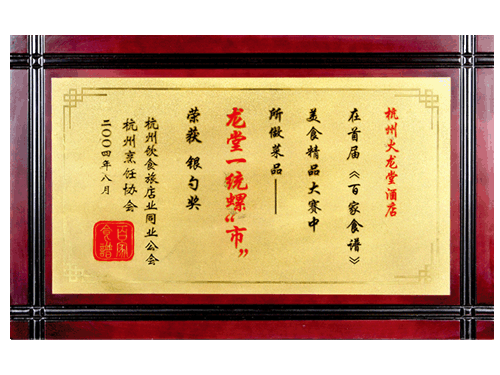 杭州火龙堂酒店
在首届《百家食谱》
美食精品大赛中
所做菜品——
龙堂一统螺“市”
荣获 银勺奖
杭州饮食旅店业同业公会
杭州烹饪协会
二〇〇四年八月
百家食谱